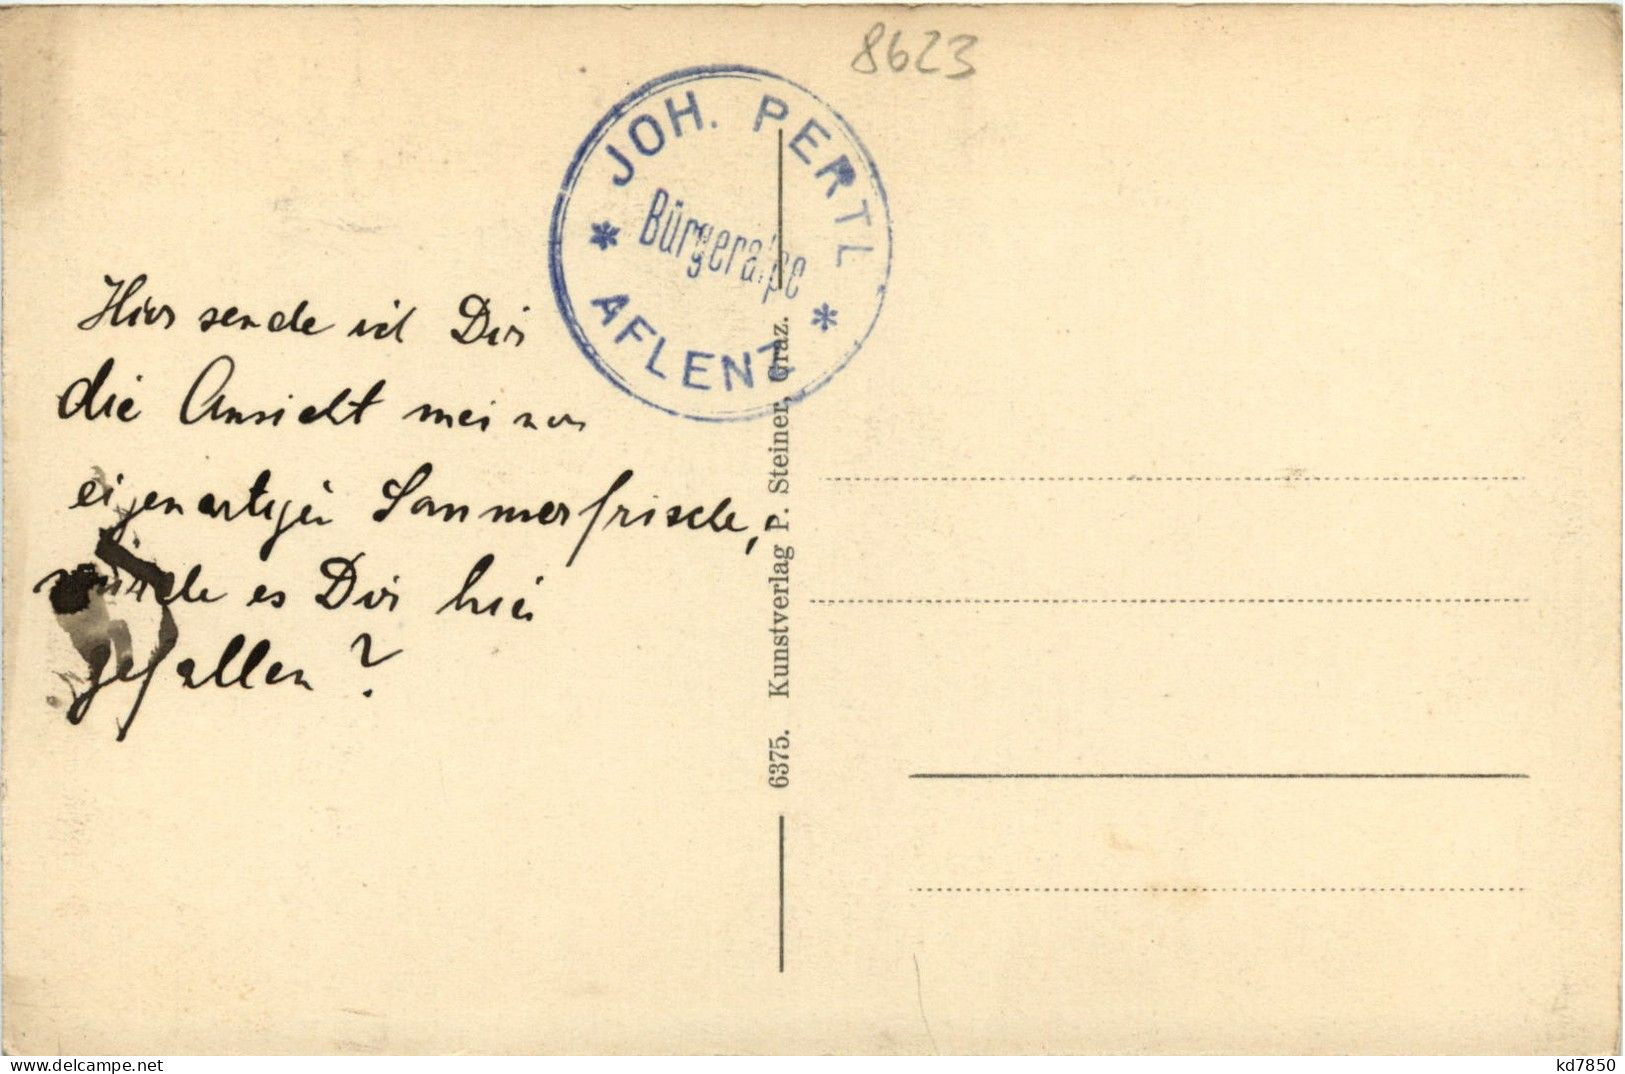 8623
JOH. PERTL
Bürgeralpe
* *
AFLENZ
Hier sende ich Dir
die Ansicht meiner
eigenartigen Sommerfrische,
würde es Dir hier
gefallen?
6375. Kunstverlag P. Steiner, Graz.
www.delcampe.net
kd7850